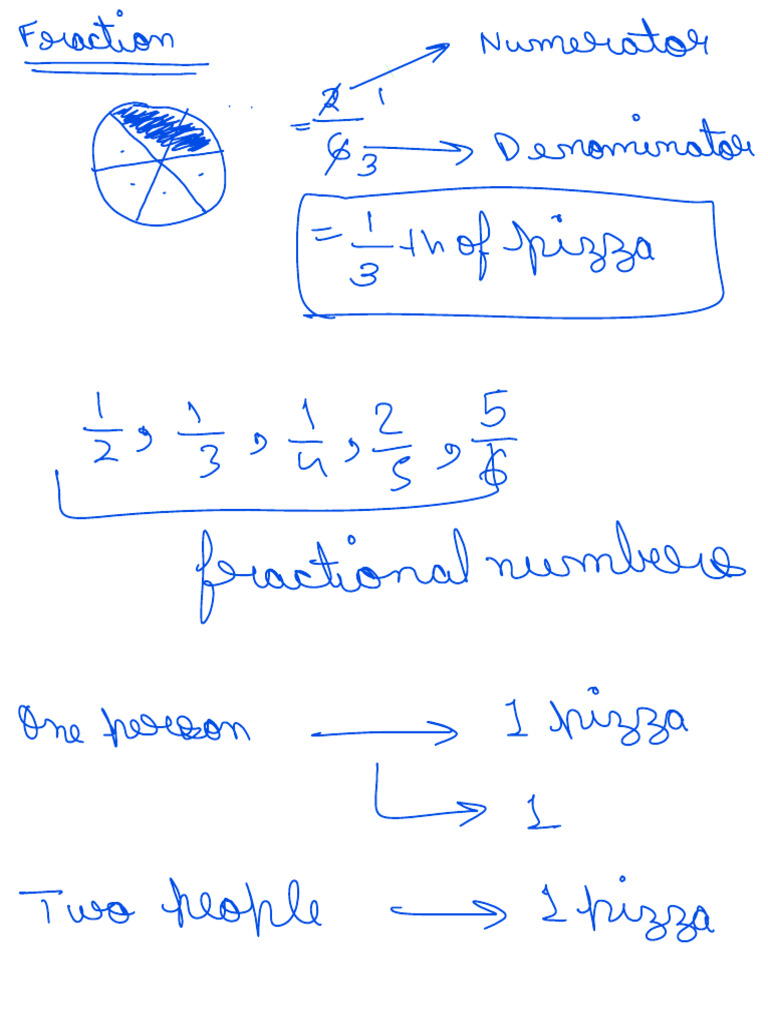 Fraction
Numerator
= 2/6 1/3
Denominator
= 1/3 th of pizza
1/2, 1/3, 1/4, 2/5, 5/6
fractional numbers
One person → 1 pizza
→ 1
Two people → 1 pizza